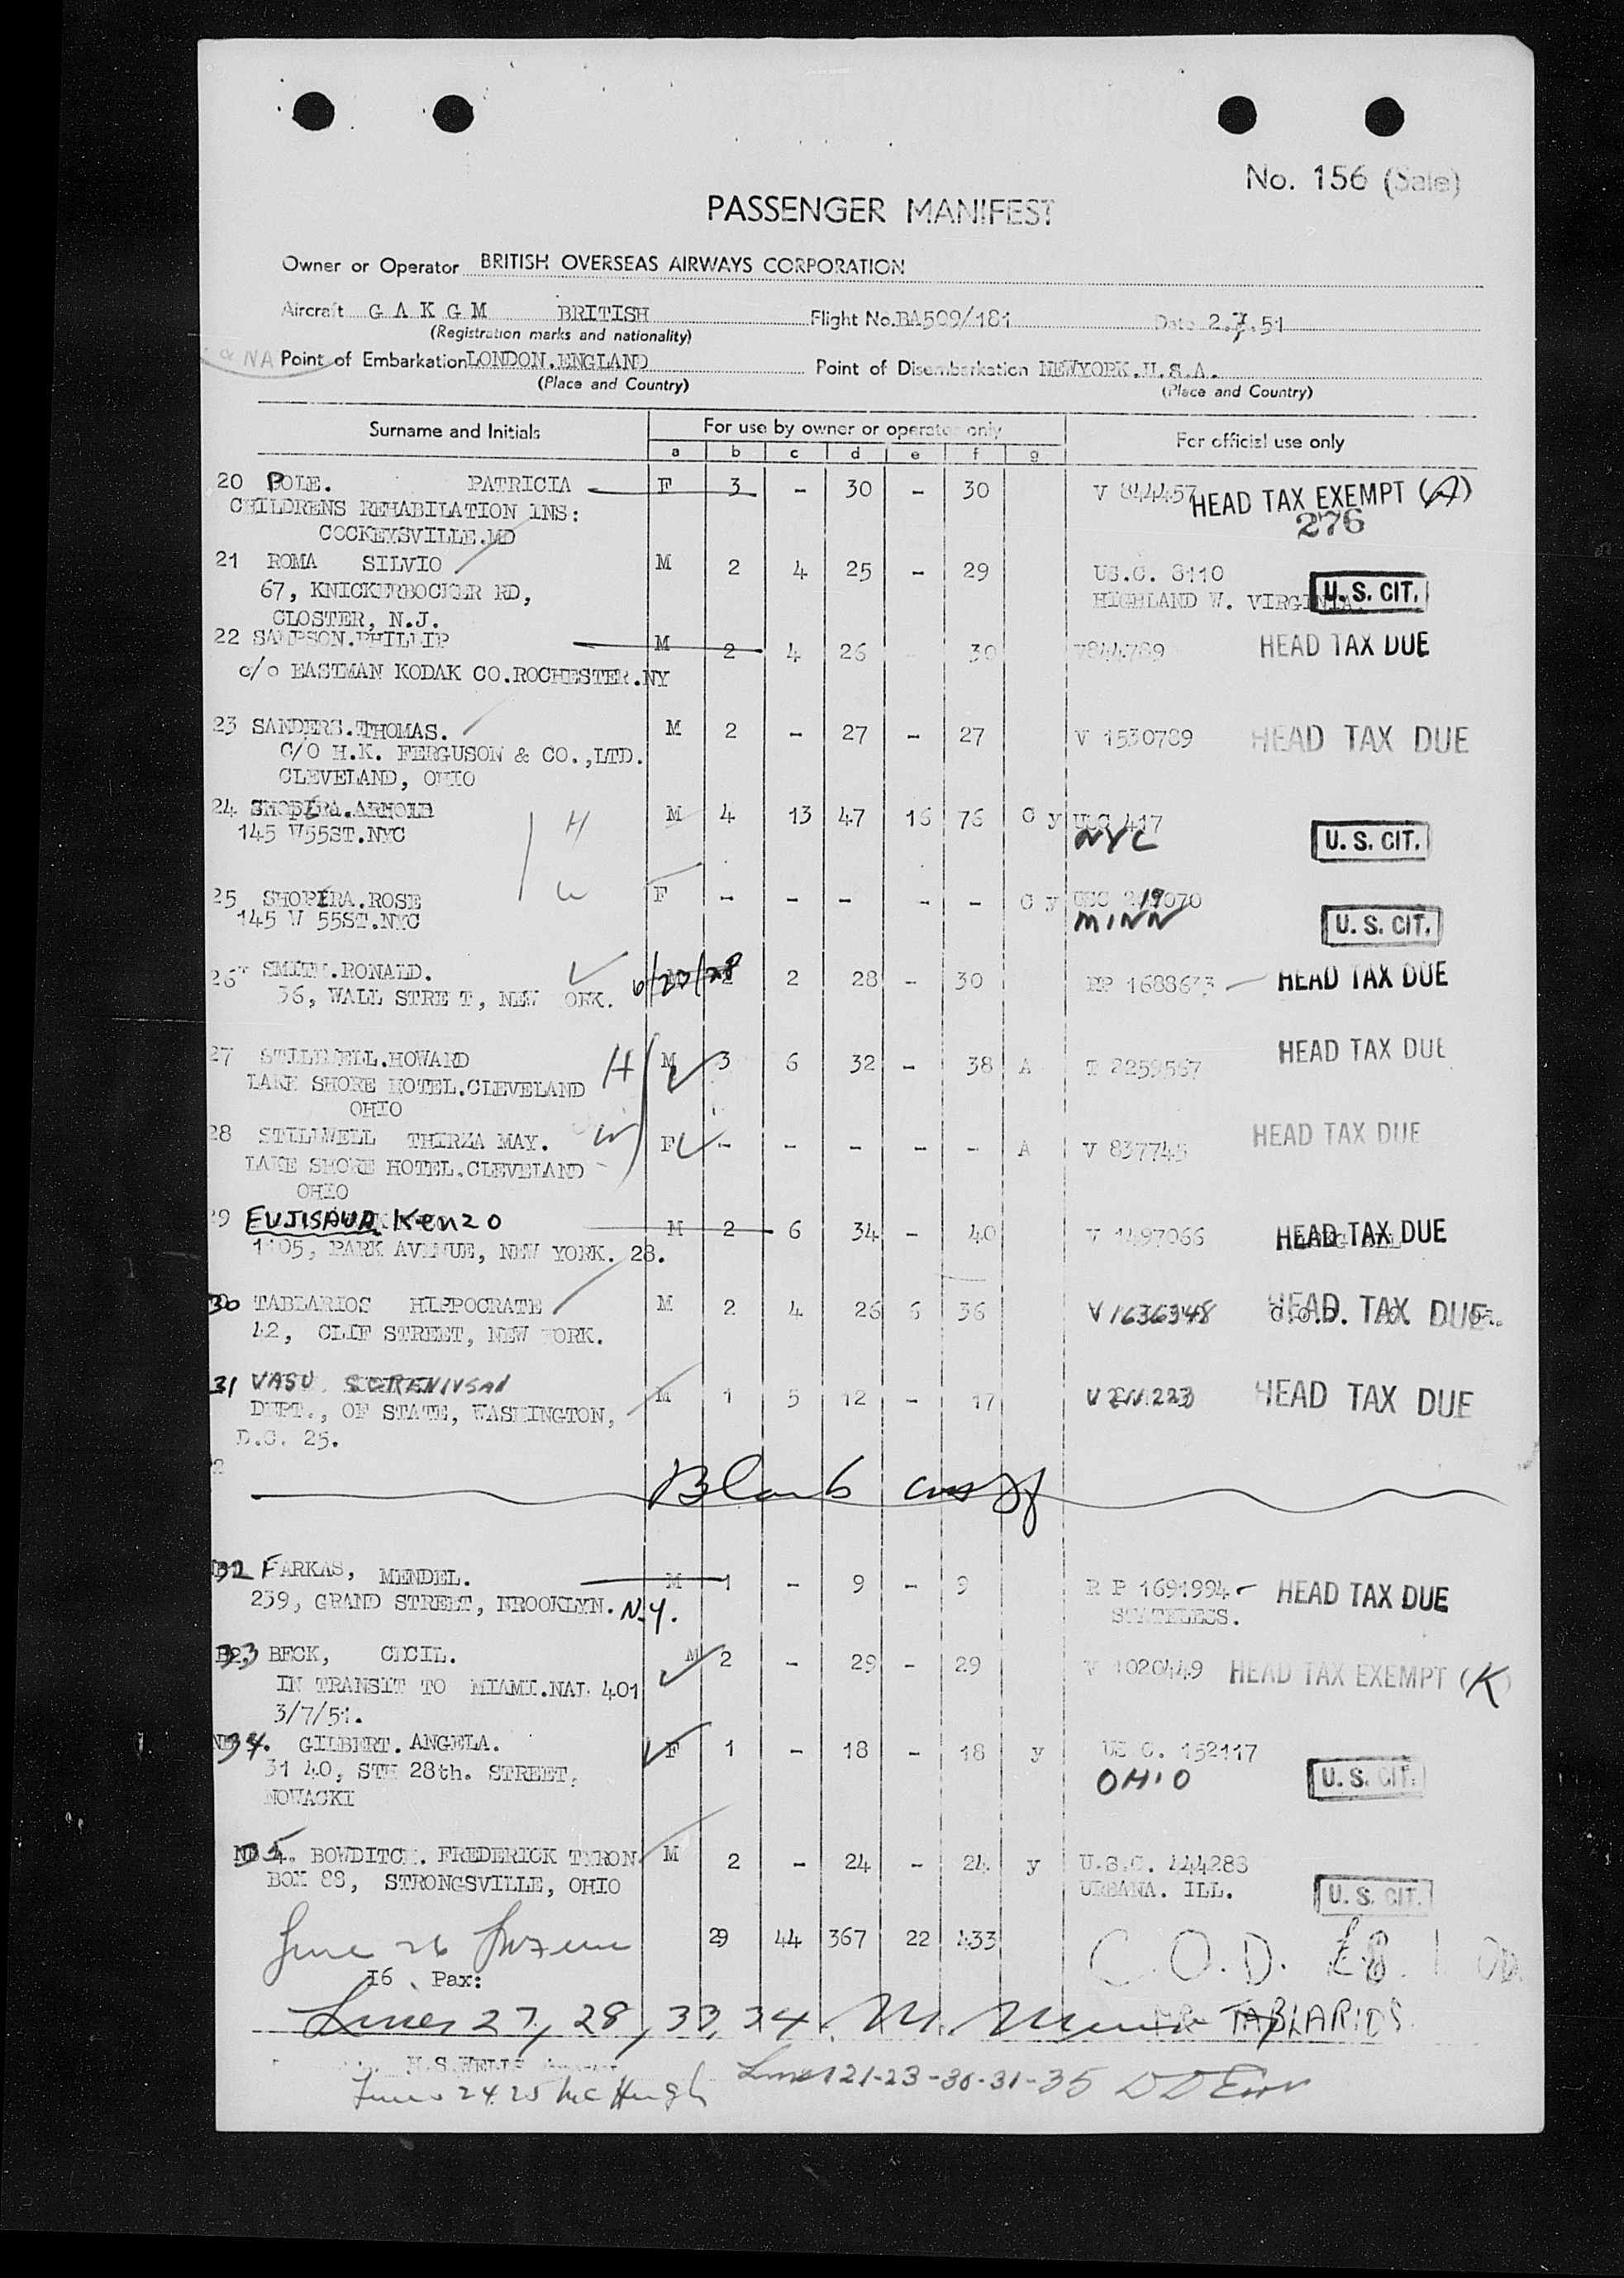 No. 156 (Sale)
PASSENGER MANIFEST
Owner or Operator BRITISH OVERSEAS AIRWAYS CORPORATION
Aircraft G A K G M BRITISH Flight No. BA509/181 Date 2.7.51
(Registration marks and nationality)
NA Point of Embarkation LONDON.ENGLAND Point of Disembarkation NEWYORK.U.S.A.
(Place and Country) (Place and Country)
Surname and Initials For use by owner or operator only For official use only
a b c d e f g
20 POLE. PATRICIA F 3 - 30 - 30 V 844457 HEAD TAX EXEMPT (A)
CHILDRENS REHABILATION INS: 276
COCKEYSVILLE.MD
21 ROMA SILVIO M 2 4 25 - 29 US.C. 8110
67, KNICKERBOCKER RD, HIGHLAND W. VIRGINIA. U. S. CIT.
CLOSTER, N.J.
22 SAMPSON.PHILLIP M 2 4 26 - 30 V844789 HEAD TAX DUE
c/o EASTMAN KODAK CO.ROCHESTER.NY
23 SANDERS.THOMAS. M 2 - 27 - 27 V 1530789 HEAD TAX DUE
C/O H.K. FERGUSON & CO.,LTD.
CLEVELAND, OHIO
24 SHOPERA.ARNOLD H M 4 13 47 16 76 C y USC 417
145 W55ST.NYC NYC U. S. CIT.
25 SHOPERA.ROSE W F - - - - - C y USC 219070
145 W 55ST.NYC MINN U. S. CIT.
26 SMITH.RONALD. 6/20/28 2 28 - 30 RP 1688633 HEAD TAX DUE
36, WALL STRE T, NEW ORK.
27 STILLWELL.HOWARD H M 3 6 32 - 38 A T 2259567 HEAD TAX DUE
LAKE SHORE HOTEL.CLEVELAND
OHIO
28 STILLWELL THIRZA MAY. W F - - - - - A V 837745 HEAD TAX DUE
LAKE SHORE HOTEL.CLEVELAND
OHIO
29 FUJISAWA Kenzo M 2 6 34 - 40 V 1497066 HEAD TAX DUE
1105, PARK AVENUE, NEW YORK. 28.
30 TABLARIOS HIPPOCRATE M 2 4 26 6 36 V 1636348 HEAD TAX DUE
42, CLIF STREET, NEW YORK.
31 VASU M 1 5 12 - 17 HEAD TAX DUE
DEPT., OF STATE, WASHINGTON,
D.C. 25.
Blank
32 FARKAS, MENDEL. M 1 - 9 - 9 R P 1691994 HEAD TAX DUE
239, GRAND STREET, BROOKLYN. N.Y. STATELESS.
33 BECK, CECIL. M 2 - 29 - 29 V 1020449 HEAD TAX EXEMPT (K)
IN TRANSIT TO MIAMI.NAL 401
3/7/51.
34. GILBERT. ANGELA. F 1 - 18 - 18 y US C. 152117
31 40, STH 28th. STREET, OHIO U. S. CIT.
NOWACKI
35 BOWDITCH. FREDERICK TYRON M 2 - 24 - 24 y U.S.C. 444283
BOX 88, STRONGSVILLE, OHIO URBANA. ILL. U. S. CIT.
29 44 367 22 433 C.O.D. £8. 1
June 26
16 Pax:
Lines 27, 28, 33, 34 M. MR TABLARIOS.
H.S.WELLS
Lines 24.25 McHugh Lines 21-23-30-31-35